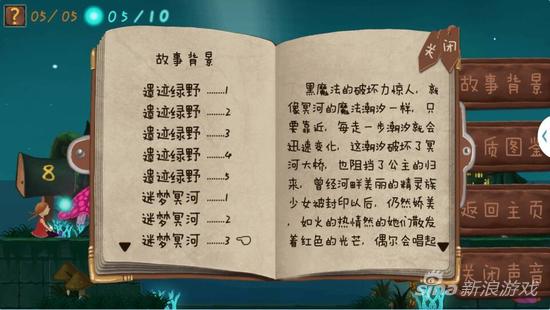 ? 05/05 05/10
关闭
故事背景
遗迹绿野……1
遗迹绿野……2
遗迹绿野……3
遗迹绿野……4
遗迹绿野……5
迷梦冥河……1
迷梦冥河……2
迷梦冥河……3
黑魔法的破坏力惊人，就
像冥河的魔法潮汐一样，只
要靠近，每走一步潮汐就会
迅速变化，这潮汐破坏了冥
河大桥，也阻挡了公主的归
来，曾经河畔美丽的精灵族
少女被封印以后，仍然娇美，
如火的热情然的她们散发
着红色的光芒，偶尔会唱起
8
故事背景
质图鉴
返回主页
关闭声音
sina新浪游戏